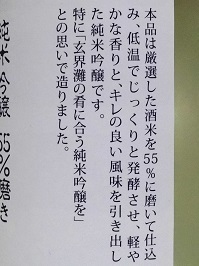 本品は厳選した酒米を55%に磨いて仕込
み、低温でじっくりと発酵させ、軽や
かな香りと、キレの良い風味を引き出し
た純米吟醸です。
特に「玄界灘の肴に合う純米吟醸を」
との思いで造りました。
純米吟醸 55%磨き